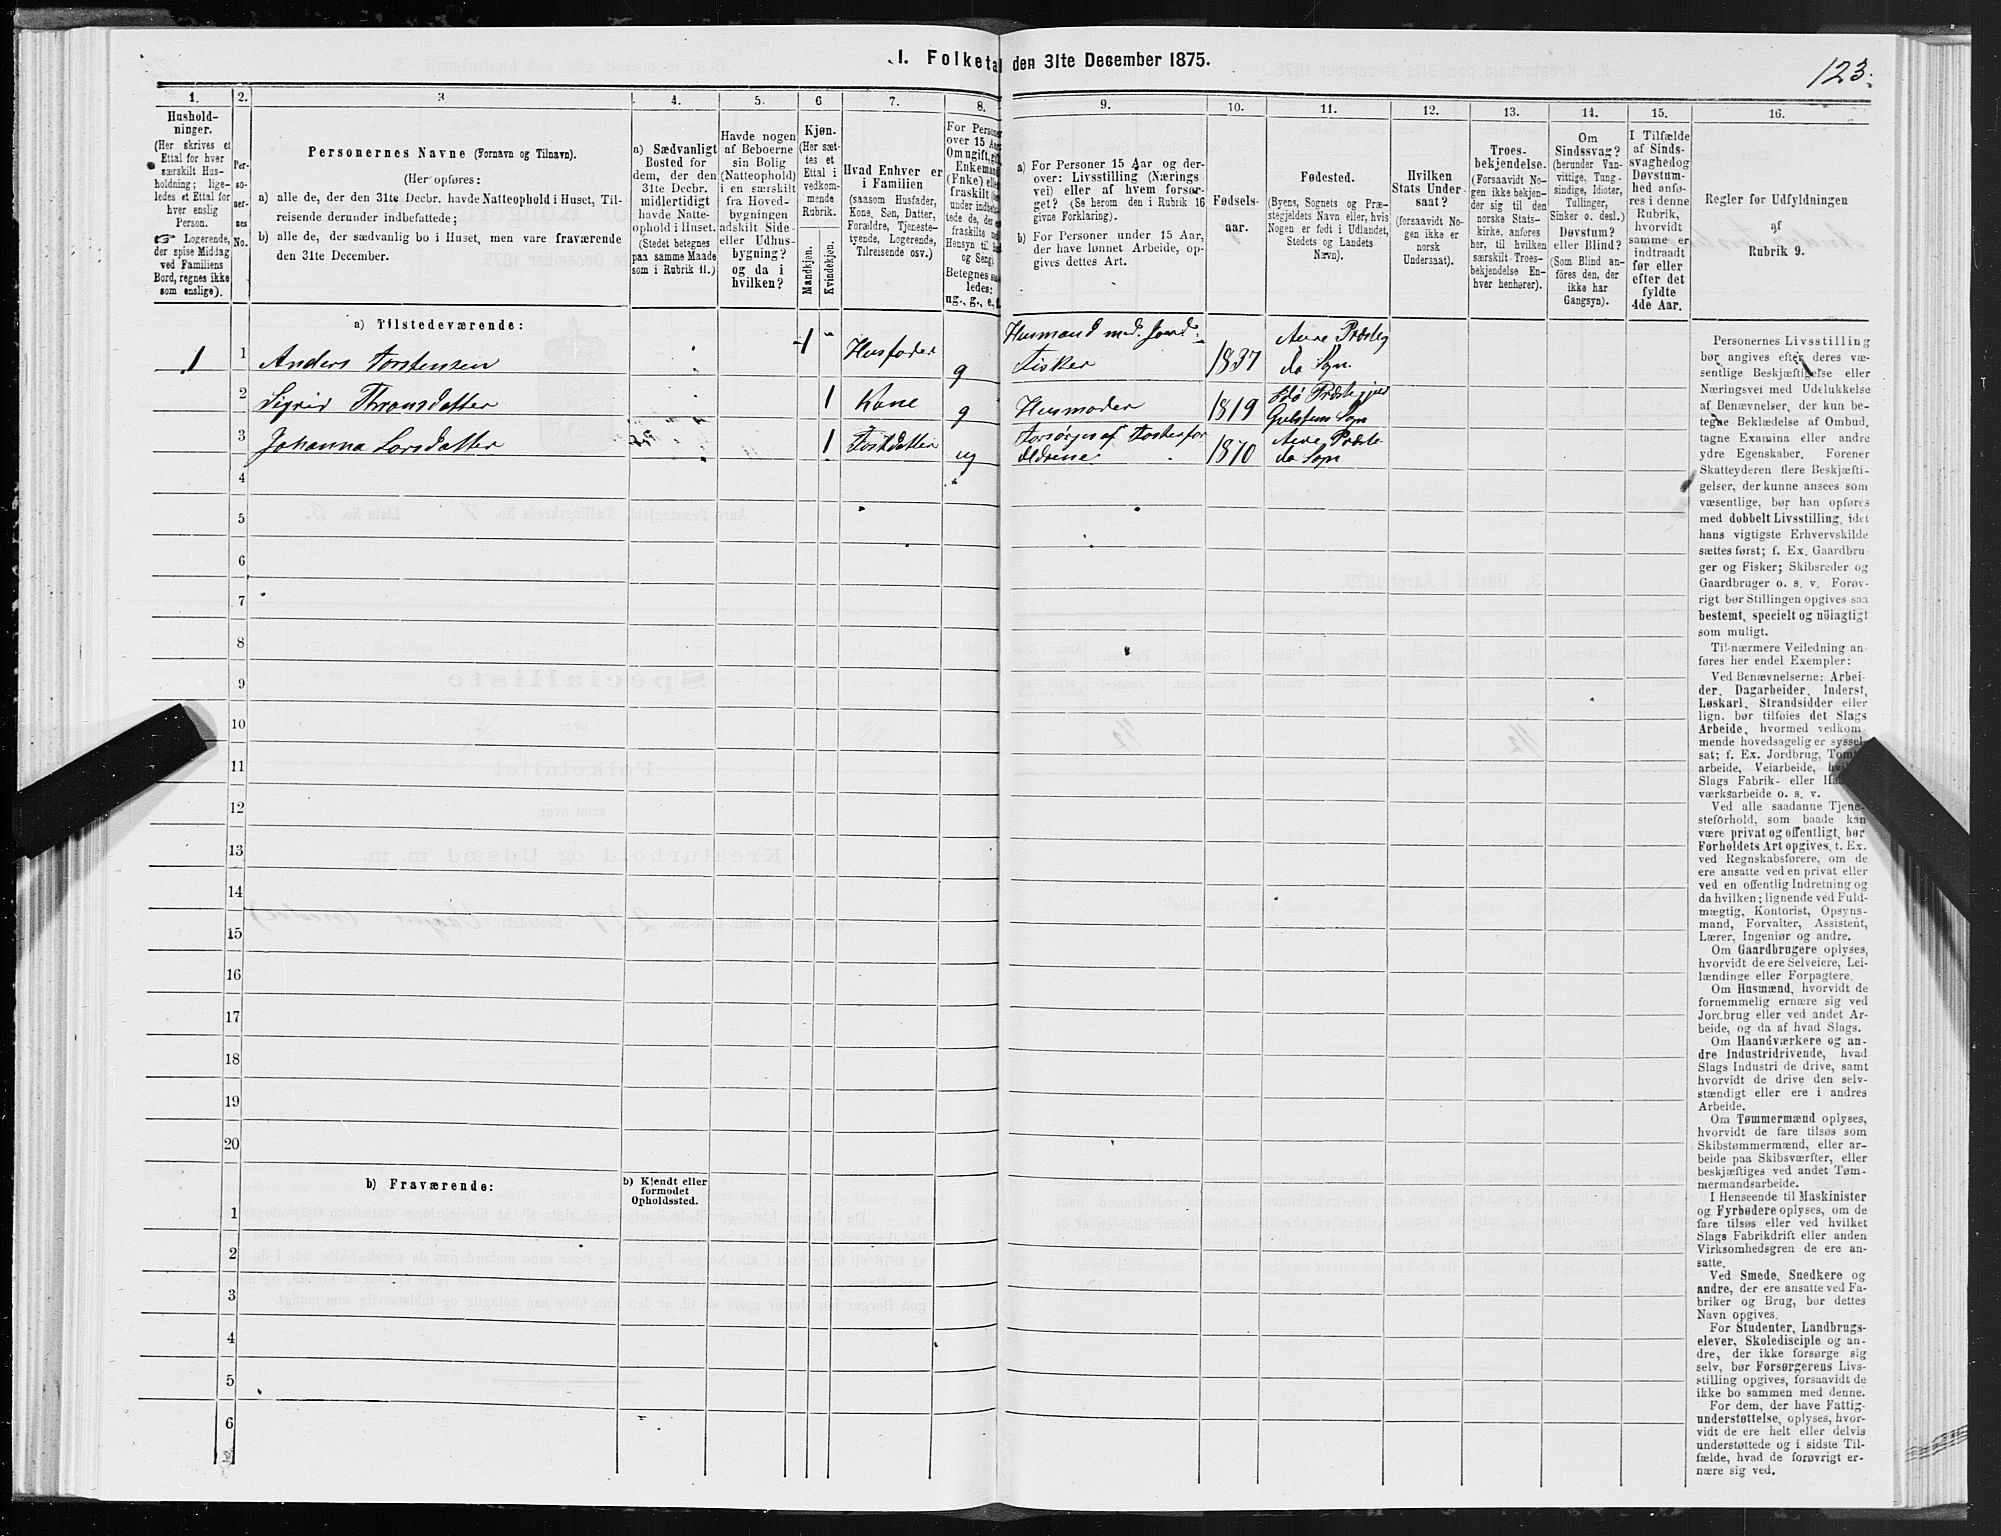 I. Folketal den 31te December 1875.
123.
1.
2.
3
4.
5.
6
7.
8.
9.
10.
11.
12.
13.
14.
15.
16.
Hushold-
ninger.
(Her skrives et
Ettal for hver
særskilt Hus-
holdning; lige-
ledes et Ettal for
hver enslig
Person.
☞ Logerende,
der spise Middag
ved Familiens
Bord, regnes ikke
som enslige).
Per-
so-
ner-
nes
No.
Personernes Navne (Fornavn og Tilnavn).
(Her opføres:
a) alle de, der den 31te Decbr. havde Natteophold i Huset, Til-
reisende derunder indbefattede;
b) alle de, der sædvanlig bo i Huset, men vare fraværende
den 31te December.
a) Sædvanligt
Bosted for
dem, der den
31te Decbr.
midlertidigt
havde Natte-
ophold i Huset.
(Stedet betegnes
paa samme Maade
som i Rubrik 11.)
Havde nogen
af Beboerne
sin Bolig
(Natteophold)
i en særskilt
fra Hoved-
bygningen
adskilt Side-
eller Udhus-
bygning?
og da i
hvilken?
Kjøn.
(Her sæt-
tes et
Ettal i
vedkom-
mende
Rubrik.
Mandkjøn.
Kvindekjøn.
Hvad Enhver er
i Familien
(saasom Husfader,
Kone, Søn, Datter,
Forældre, Tjeneste-
tyende, Logerende,
Tilreisende osv.)
For Persone
over 15 Aa
Om ugift, gift
Enkemand
(Enke) elle
fraskilt
under indbefat-
tede de, der
fraskilte
Hensyn til
og Seng).
Betegnes saa
ledes:
ug., g., e., f.
a) For Personer 15 Aar og der-
over: Livsstilling (Nærings
vei) eller af hvem forsør-
get? (Se herom den i Rubrik 16
givne Forklaring).
b) For Personer under 15 Aar,
der have lønnet Arbeide, op-
gives dettes Art.
Fødsels-
aar.
Fødested.
(Byens, Sognets og Præ-
stegjeldets Navn eller, hvis
Nogen er født i Udlandet,
Stedets og Landets
Navn).
Hvilken
Stats Under-
saat?
(forsaavidt No-
gen ikke er
norsk
Undersaat).
Troes-
bekjendelse.
(Forsaavidt No-
gen ikke bekjen-
der sig til den
norske Stats-
kirke, anføres
her, til hvilken
særskilt Troes-
bekjendelse En-
hver henhører).
Om
Sindssvag?
(herunder Van-
vittige, Tung-
sindige, Idioter,
Tullinger,
Sinker o. desl.)
Døvstum?
eller Blind?
(Som Blind an-
føres den, der
ikke har
Gangsyn).
I Tilfælde
af Sinds-
svaghedog
Døvstum-
hed anfø-
res i denne
Rubrik,
hvorvidt
samme er
indtraadt
før eller
efter det
fyldte
4de Aar.
Regler for Udfyldningen
af
Rubrik 9.
a) Tilstedeværende:
1 1 Anders Torstensen 1 " Husfader g Husmand med Jord. Fisker 1837 Aure Præsteg do Sogn
2 Sigrid Thronsdatter 1 Kone g Husmoder 1819 Edø Præstegjeld Gulstein Sogn
3 Johanna Larsdatter 1 Fostdatter ug Forsørges af Fosterfor ældrene. 1870 Aure Præste do Sogn
4
5
6
7
8
9
10
11
12
13
14
15
16
17
18
19
20
b) Fraværende:
b) Kjendt eller
formodet
Opholdssted.
1
2
3
4
5
6
Personernes Livsstilling
bør angives efter deres væ-
sentlige Beskjæftigelse eller
Næringsvei med Udelukkelse
af Benævnelser, der kun be-
tegne Beklædelse af Ombud,
tagne Examina eller andre
ydre Egenskaber. Forener
Skatteyderen flere Beskjæfti-
gelser, der kunne ansees som
væsentlige, bør han opføres
med dobbelt Livsstilling, idet
hans vigtigste Erhvervskilde
sættes først; f. Ex. Gaardbru-
ger og Fisker; Skibsreder og
Gaardbruger o. s. v. Forøv-
rigt bør Stillingen opgives saa
bestemt, specielt og nöiagtigt
som muligt.
Til nærmere Veiledning an-
føres her endel Exempler:
Ved Benævnelserne: Arbei-
der, Dagarbeider, Inderst,
Løskarl, Strandsidder eller
lign. bør tilføies det Slags
Arbeide, hvormed vedkom-
mende hovedsagelig er syssel-
sat; f. Ex. Jordbrug, Tomte-
arbeide, Veiarbeide, hvilket
Slags Fabrik- eller Haand-
værksarbeide o. s. v.
Ved alle saadanne Tjene-
steforhold, som baade kan
være privat og offentligt, bør
Forholdets Art opgives, t. Ex.
ved Regnskabsførere, om de
ere ansatte ved en privat eller
ved en offentlig Indretning og
da hvilken; lignende ved Fuld-
mægtig, Kontorist, Opsyns-
mand, Forvalter, Assistent,
Lærer, Ingeniør og andre.
Om Gaardbrugere oplyses,
hvorvidt de ere Selveiere, Lei-
lændinge eller Forpagtere.
Om Husmænd, hvorvidt de
fornemmelig ernære sig ved
Jordbrug eller ved andet Ar-
beide, og da af hvad Slags.
Om Haandværkere og an-
dre Industridrivende, hvad
Slags Industri de drive, samt
hvorvidt de drive den selv-
stændigt eller ere i andres
Arbeide.
Om Tømmermænd oplyses,
hvorvidt de fare tilsøs som
Skibstømmermænd, eller ar-
beide paa Skibsværfter, eller
beskjæftiges ved andet Tøm-
mermandsarbeide.
I Henseende til Maskinister
og Fyrbødere oplyses, om de
fare tilsøs eller ved hvilket
Slags Fabrikdrift eller anden
Virksomhedsgren de ere an-
satte.
Ved Smede, Snedkere og
andre, der ere ansatte ved Fa-
briker og Brug, bør dettes
Navn opgives.
For Studenter, Landbrugs-
elever, Skoledisciple og an-
dre, der ikke forsørge sig
selv, bør Forsørgerens Livs-
stilling opgives, forsaavidt de
ikke bo sammen med denne.
For dem, der have Fattig-
understøttelse, oplyses, hvor-
vidt de ere helt eller delvis
understøttede og i sidste Til-
fælde, hvad de forøvrigt er-
nære sig ved.